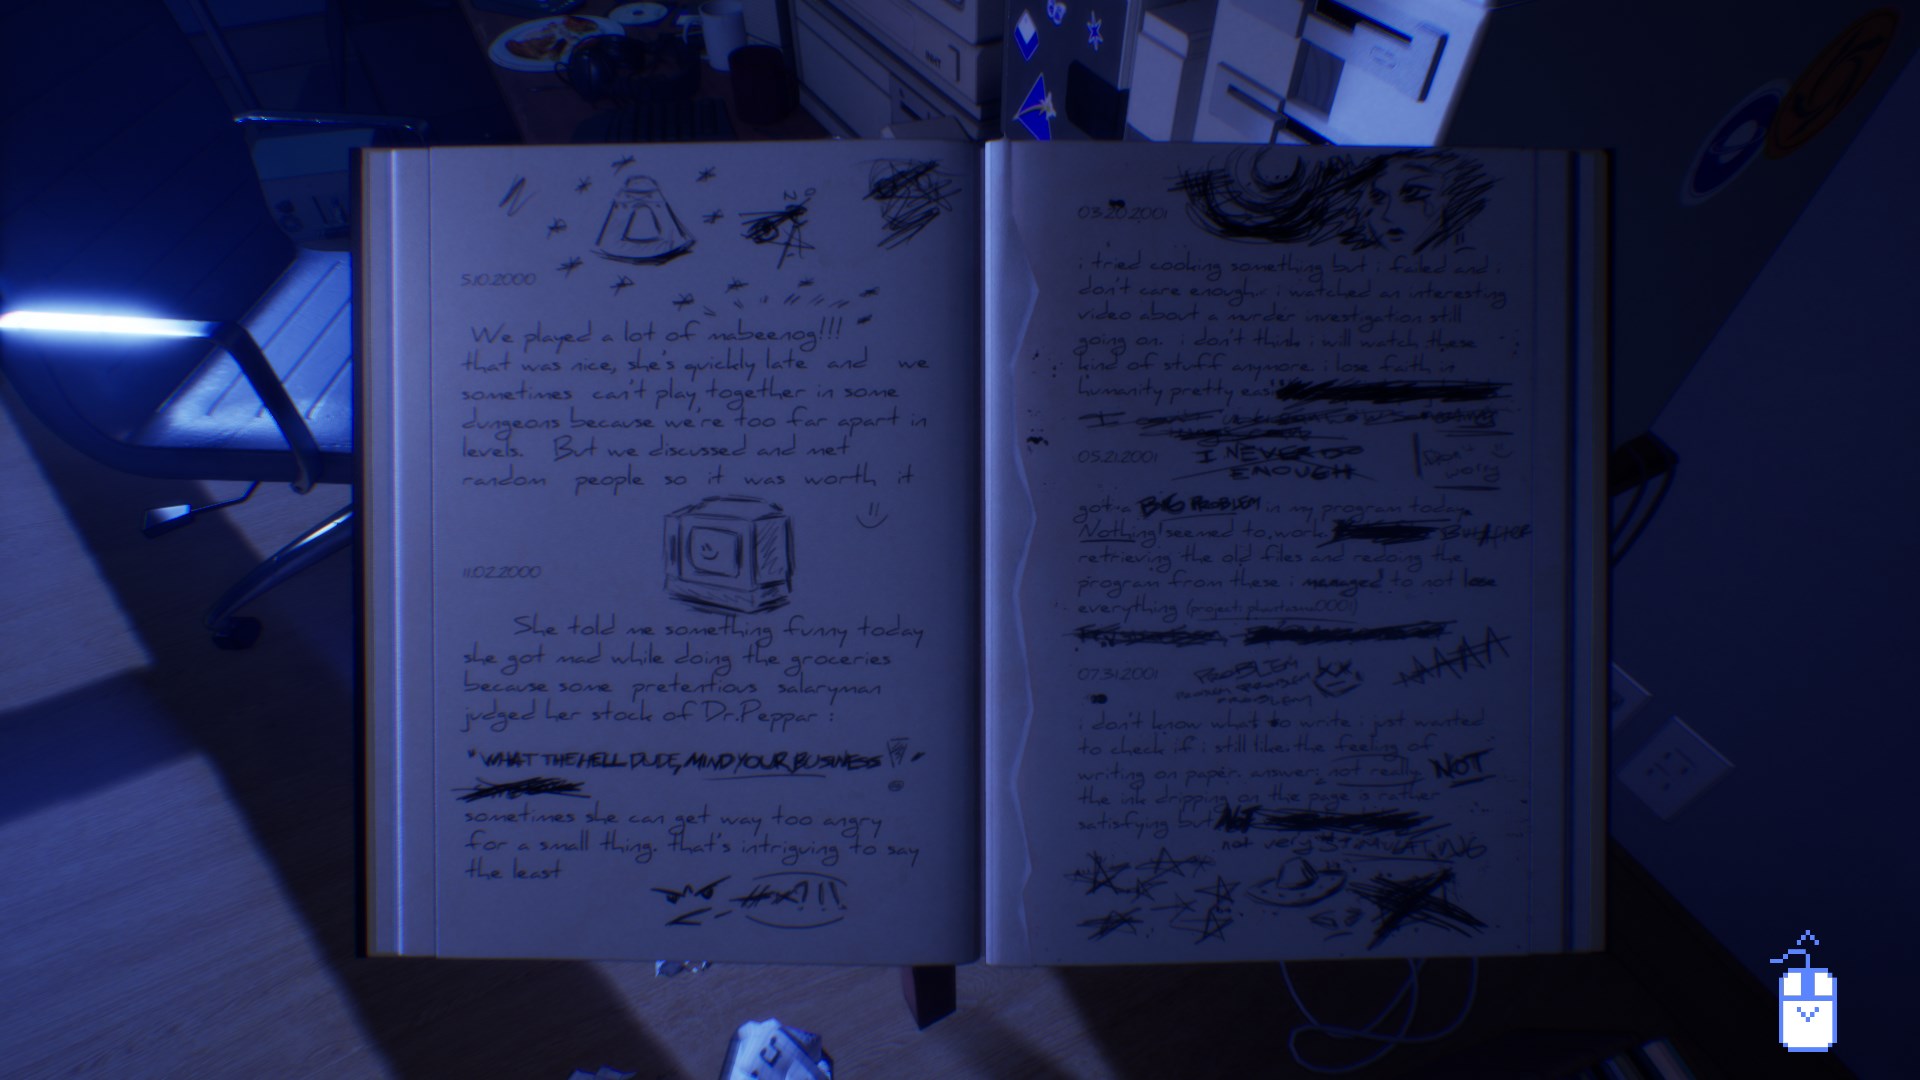 5.10.2000
We played a lot of mabeenog!!!
that was nice, she's quickly late and we
sometimes can't play together in some
dungeons because we're too far apart in
levels. But we discussed and met
random people so it was worth it
11.02.2000
She told me something funny today
she got mad while doing the groceries
because some pretentious salaryman
judged her stock of Dr.Peppar :
"WHAT THE HELL DUDE, MIND YOUR BUSINESS"
sometimes she can get way too angry
for a small thing. that's intriguing to say
the least
#x?!!
03.20.2001
i tried cooking something but i failed and i
don't care enough. i watched an interesting
video about a murder investigation still
going on. i don't think i will watch these
kind of stuff anymore. i lose faith in
humanity pretty
05.21.2001
I NEVER DO
ENOUGH
Don't
worry
got a BIG PROBLEM in my program today.
Nothing! seemed to work. But after
retrieving the old files and redoing the
program from these i managed to not lose
everything (project: phantasma0001)
07.31.2001
PROBLEM
PROBLEM PROBLEM
PROBLEM
AAAA
i don't know what to write i just wanted
to check if i still like the feeling of
writing on paper. answer: not really NOT
the ink dripping on the page is rather
satisfying but
not very STIMULATING